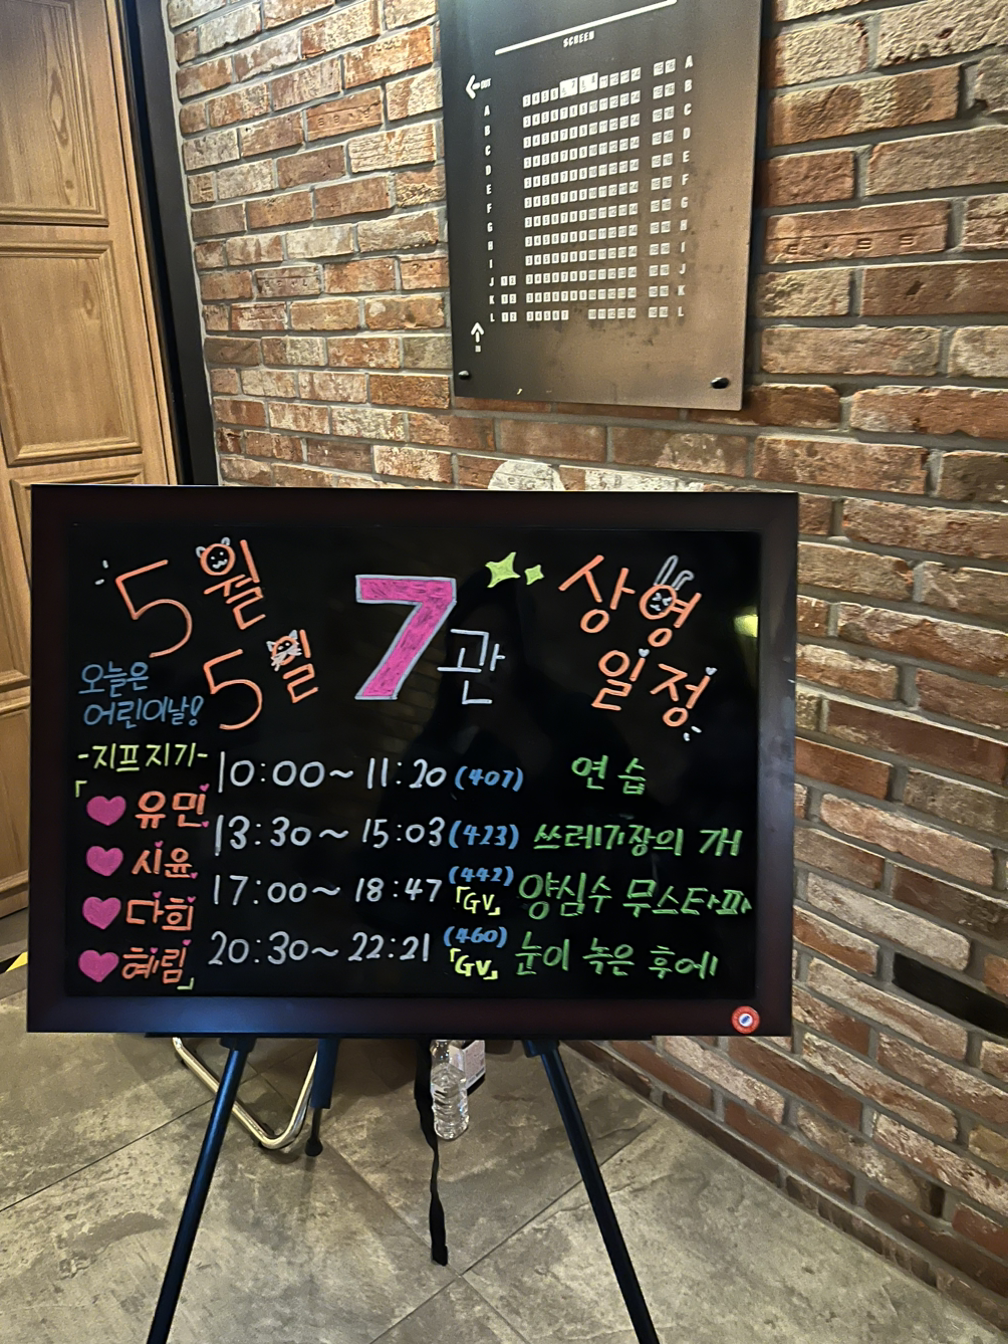 SCREEN
OUT
A
A
B
B
C
C
D
D
E
E
F
F
G
G
H
H
I
I
J
J
K
K
L
L
IN
5월
5일
7관
상영
일정
오늘은
어린이날!
-지프지기-
「♥유민
♥시윤
♥다희
♥혜림」
10:00~ 11:20 (407) 연습
13:30~ 15:03 (423) 쓰레기장의 개
17:00~ 18:47 (442) 「GV」 양심수 무스타파
20:30~ 22:21 (460) 「GV」 눈이 녹은 후에